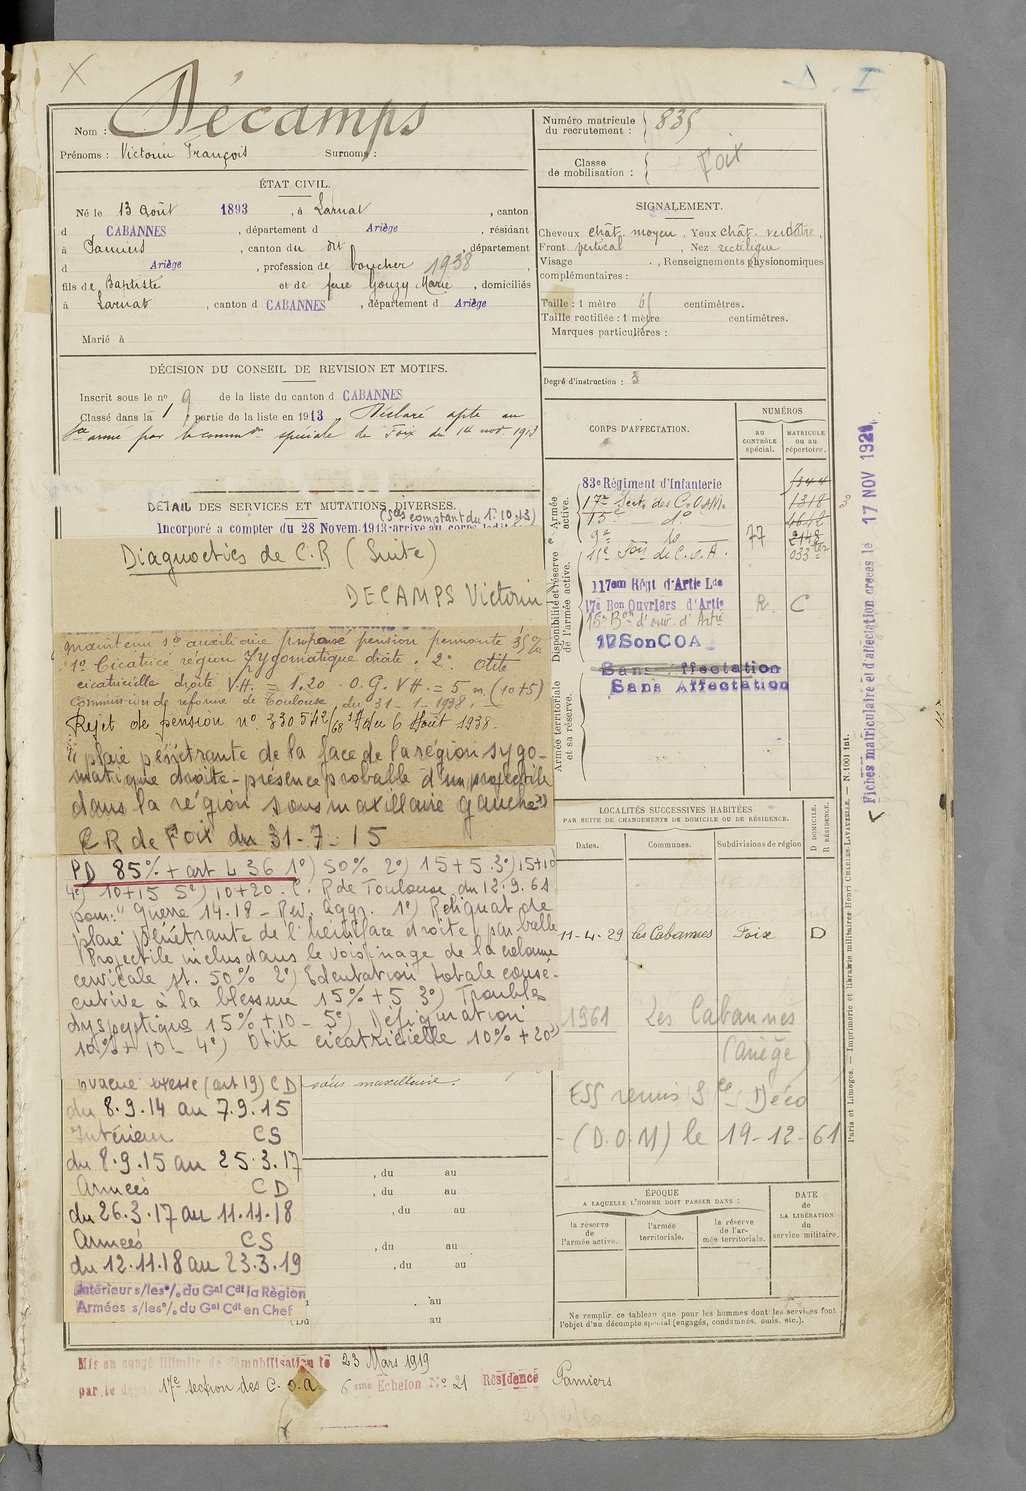 X
D. I
Nom : Décamps
Prénoms : Victorin François Surnoms :
ÉTAT CIVIL.
Né le 13 Août 1893, à Larnat, canton
d CABANNES, département d Ariège, résidant
à Pamiers, canton du dit, département
d Ariège, profession de boucher 1938
fils de Baptiste et de feue Gouzy Marie, domiciliés
à Larnat, canton d CABANNES, département d Ariège
Marié à
DÉCISION DU CONSEIL DE REVISION ET MOTIFS.
Inscrit sous le no 9 de la liste du canton d CABANNES
Classé dans la 1 partie de la liste en 1913. Déclaré apte au
sce armé par la common spéciale de Foix du 14 nov 1913
DÉTAIL DES SERVICES ET MUTATIONS DIVERSES.
(Sces comptant du 1-10-13)
Incorporé à compter du 28 Novem. 1913 arrivé au corps ledit
Diagnostics de C.R (Suite)
DECAMPS Victorin
maintenu sce auxiliaire propose pension permante 35%
1° Cicatrice région Zygomatique droite. 2° Otite
cicatricielle droite V.H. = 1.20. O.G. VH. = 5 m (10+5)
Commission de réforme de Toulouse, du 31-1-1938.
Rejet de pension no 330542/68 du 6 Août 1938.
"plaie pénétrante de la face de la région sygo-
matique droite - présence probable d'un projectile
dans la région sous maxillaire gauche"
CR de Foix du 31-7-15
PD 85% + art L 36 1°) 50% 2°) 15+5 3°) 15+10
4°) 10+15 5°) 10+20. C. R de Toulouse du 12.9.61
pour: "Guerre 14-18 - Rev. aggr. 1°) Reliquat de
plaie pénétrante de l'hémiface droite par balle
Projectile inclus dans le voisinage de la colonne
cervicale st. 50% 2°) Edentation totale consé-
cutive à la blessure 15% + 5 3°) Troubles
dyspeptiques 15% + 10 - 5°) Défiguration
10% + 10 - 4°) Otite cicatricielle 10% + 20"
évacué blessé (art 19) CD
sous maxillaire.
du 8.9.14 au 7.9.15
Intérieur CS
du 8.9.15 au 25.3.17
Armées CD
du 26.3.17 au 11.11.18
Armées CS
du 12.11.18 au 23.3.19
Intérieur s/les o/. du Gal Cdt la Région
Armées s/les o/. du Gal Cdt en Chef
, du au
, du au
, du au
, du au
, du au
au
(Du au
Mis en congé illimité de démobilisation le 23 Mars 1919
par le dépôt 17e section des C.O.A 6eme Echelon No 21 Résidence Pamiers
Numéro matricule du recrutement : 835
Classe de mobilisation : Foix
SIGNALEMENT.
Cheveux chât. moyen, Yeux chât. verdâtre,
Front vertical, Nez rectiligne
Visage , Renseignements physionomiques
complémentaires :
Taille : 1 mètre 65 centimètres.
Taille rectifiée : 1 mètre centimètres.
Marques particulières :
Degré d'instruction : 3
CORPS D'AFFECTATION.
NUMÉROS
AU CONTRÔLE spécial.
MATRICULE ou au répertoire.
Armée active.
Disponibilité et réserve de l'armée active.
Armée territoriale et sa réserve.
83e Régiment d'Infanterie
17e Section des C.O.A.M. 1318
15e do
9e do 77 2148
117em Régt d'Artie Lde
17e Bon Ouvriers d'Artie R. C
16e Bon d'ouv. d'Artie
17 Son COA
Sans Affectation
Sans Affectation
LOCALITÉS SUCCESSIVES HABITÉES
PAR SUITE DE CHANGEMENTS DE DOMICILE OU DE RÉSIDENCE.
Dates. Communes. Subdivisions de région
D DOMICILE. R RÉSIDENCE.
11-4-29 Les Cabannes Foix D
1961 Les Cabannes
(Ariège)
ESS remis Sce Déco
(D.O.M) le 19-12-61
ÉPOQUE
A LAQUELLE L'HOMME DOIT PASSER DANS :
la réserve de l'armée active.
l'armée territoriale.
la réserve de l'armée territoriale.
DATE de LA LIBÉRATION du service militaire.
Ne remplir ce tableau que pour les hommes dont les services font
l'objet d'un décompte spécial (engagés, condamnés, omis, etc.).
Fiches matriculaire et d'affectation créées le 17 NOV 1921
Paris et Limoges. — Imprimerie et librairie militaires Henri CHARLES-LAVAUZELLE. — N. 1001 int.